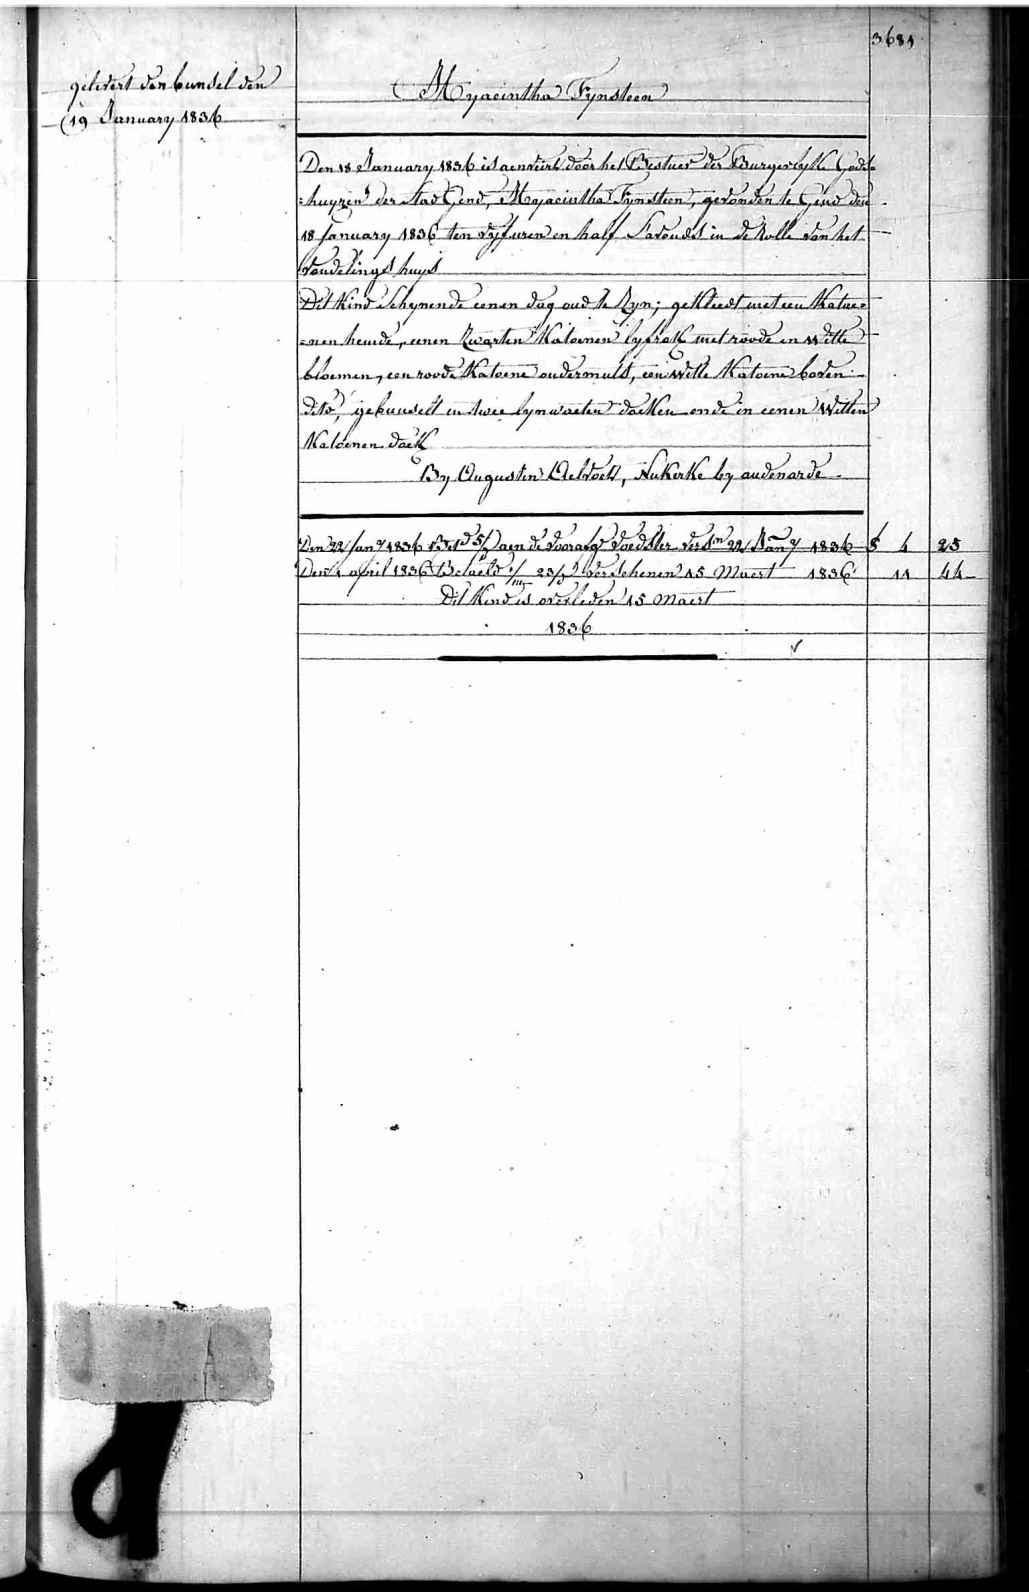 3681
gelevert den bundel den
19 January 1836
Hyacintha Fynsteen
Den 18 January 1836 is aenveirt door het Bestuer der Burgerlyke Gods=
=huyzen der Stad Gend, Hyacintha Fynsteen, gevonden te Gend den
18 January 1836 ten vyf uren en half s'avonds in de Rolle van het
vondelings huys
Dit Kind schynende eenen dag oud te Zyn; gekleedt met een Katoe=
=nen hemde, eenen Zwarten Katoenen lyfrok met roode en Witte
bloemen, een roode Katoene ondermuts, een witte Katoene boven
dito, gebunselt in twee lynwaeten doeken ende in eenen Witten
Katoenen doek
By Augustin Aelvoet, Nukerke by audenarde
Den 22 Jany 1836 aen de voedster 22 Jany 1836 4 25
Den 1 april 1836 Betaeld 23/ verschenen 15 Maert 1836 11 44
Dit Kind is overleden 15 Maert
1836